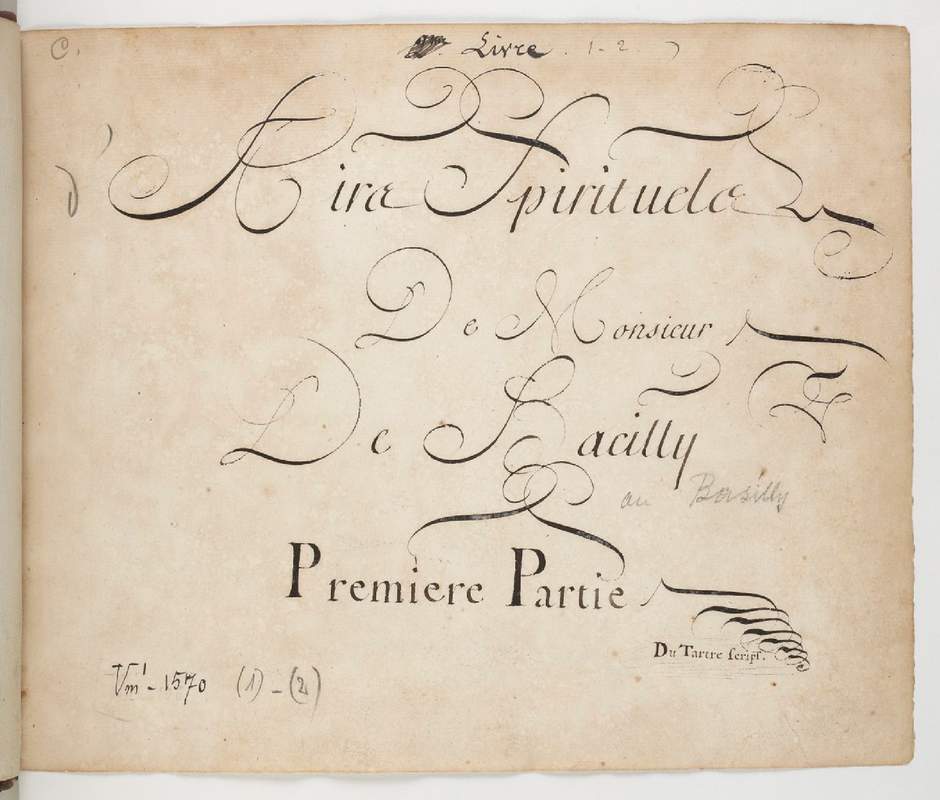 C.
Livre . 1-2.
Airs Spirituels
De Monsieur
De Bacilly
ou Basilly
Premiere Partie
Du Tartre scrips.
Vm¹-1570 (1)-(2)